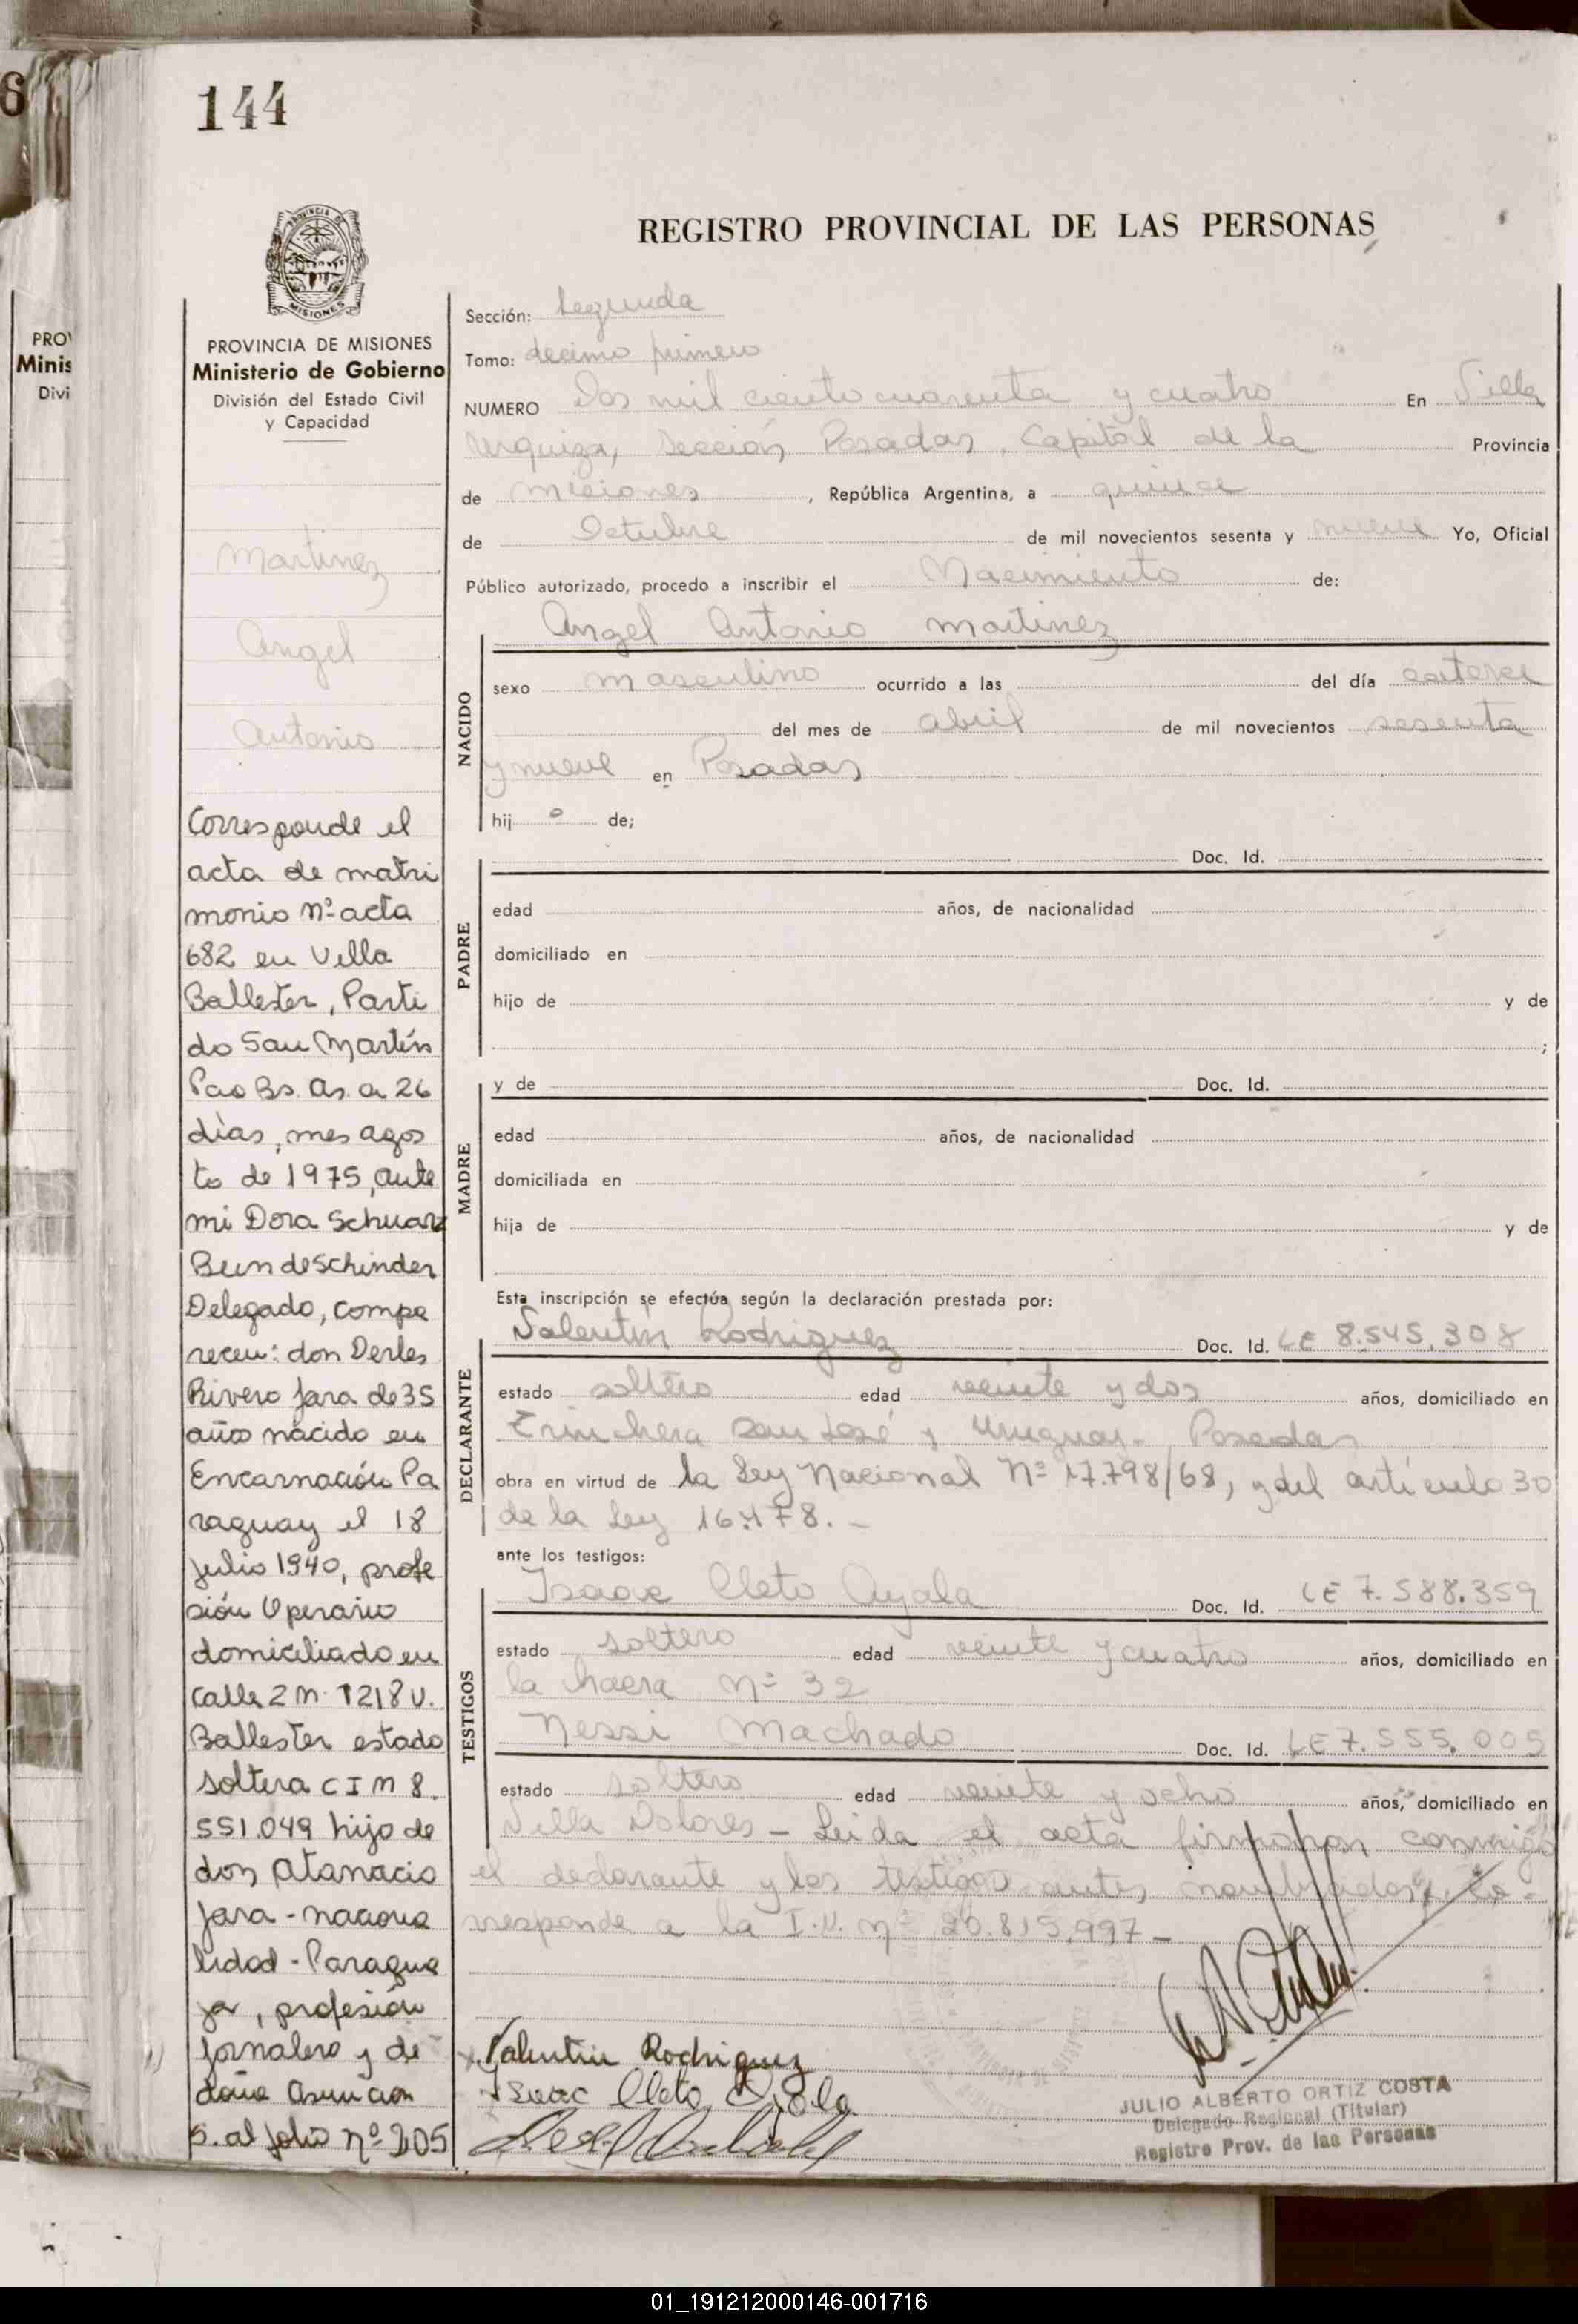 144
REGISTRO PROVINCIAL DE LAS PERSONAS
PROVINCIA DE MISIONES
Ministerio de Gobierno
División del Estado Civil
y Capacidad
Martinez
Angel
Antonio
Corresponde el
acta de matri
monio Nº acta
682 en Villa
Ballester, Parti
do San Martín
Pcio Bs. As. a 26
días, mes agos
to de 1975, ante
mi Dora Schuarz
Bundeschinder
Delegado, compa
recen: don Derles
Rivero Jara de 35
años nacido en
Encarnación Pa
raguay el 18
julio 1940, profe
sión Operario
domiciliado en
Calle 2 N. 1218 V.
Ballester estado
soltera C I N 8.
551.049 hijo de
don Atanacio
Jara - naciona
lidad - Paragua
ya, profesión
Jornalero y de
doña Asuncion
S. al folio nº 205
Sección: Segunda
Tomo: decimo primero
NUMERO Dos mil ciento cuarenta y cuatro En Villa
Urquiza, Sección Posadas, Capital de la Provincia
de Misiones, República Argentina, a quince
de Octubre de mil novecientos sesenta y nueve Yo, Oficial
Público autorizado, procedo a inscribir el Nacimiento de:
NACIDO
Angel Antonio Martinez
sexo masculino ocurrido a las del día catorce
del mes de abril de mil novecientos sesenta
y nueve en Posadas
hij o de;
PADRE
Doc. Id.
edad años, de nacionalidad
domiciliado en
hijo de y de
;
MADRE
y de Doc. Id.
edad años, de nacionalidad
domiciliada en
hija de y de
Esta inscripción se efectúa según la declaración prestada por:
DECLARANTE
Valentín Rodriguez Doc. Id. LE 8.545.308
estado soltero edad veinte y dos años, domiciliado en
Trinchera San José y Uruguay - Posadas
obra en virtud de la Ley Nacional Nº 17.798/68, y del artículo 30
de la Ley 16.478. -
ante los testigos:
TESTIGOS
Isaac Cleto Ayala Doc. Id. LE 7.588.359
estado soltero edad veinte y cuatro años, domiciliado en
la chacra Nº 32
Nessi Machado Doc. Id. LE 7.555.005
estado soltero edad veinte y ocho años, domiciliado en
Villa Dolores - Leida el acta firmaron conmigo
el declarante y los testigos antes nombrados, Co-
rresponde a la I.U. nº 20.815.997 -
Valentin Rodriguez
Isaac Cleto Ayala
JULIO ALBERTO ORTIZ COSTA
Delegado Regional (Titular)
Registro Prov. de las Personas
01_191212000146-001716